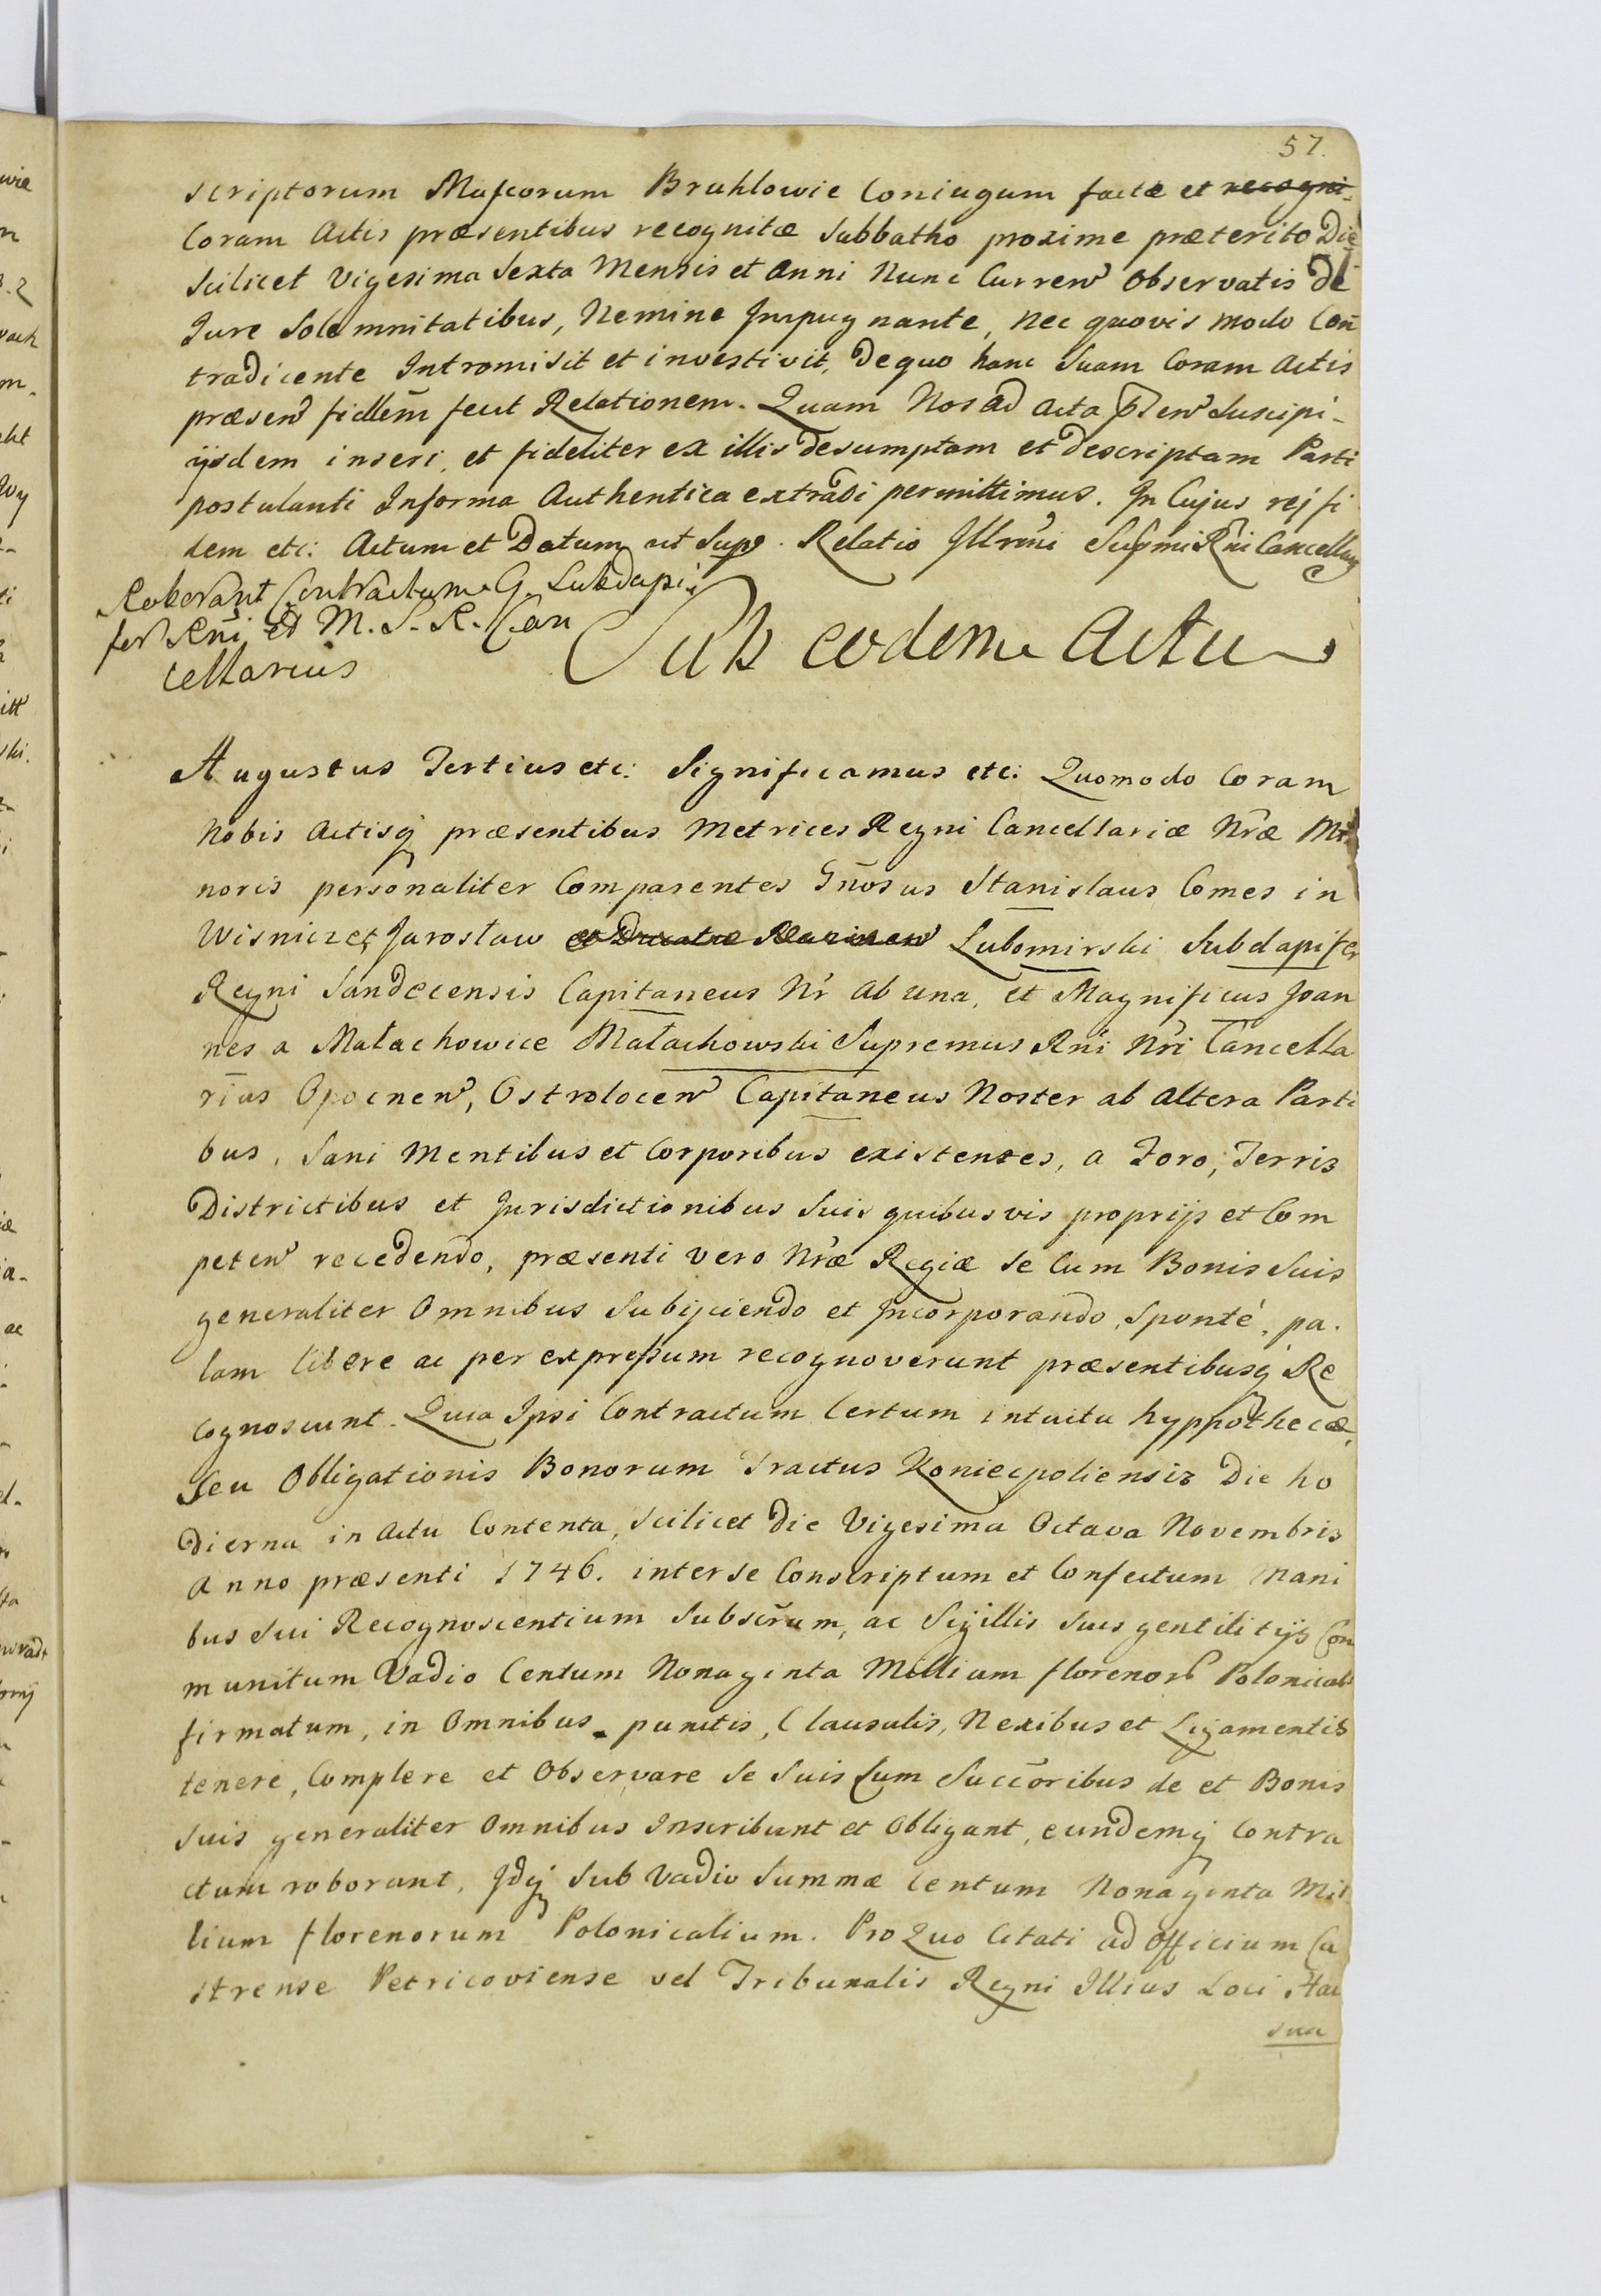 57.
scriptorum Mafcorum Bruhlowie Coniugum factæ et recogni-
Coram Actis præsentibus recognitæ Sabbatho proxime præterito Die
Scilicet Vigesima Sexta Mensis et Anni Nunc Curren̄ Observatis de
Jure Solemnitatibus, Nemine Impugnante, Nec quovis modo Con̄
tradicente Intromisit et investivit, De quo hanc Suam Coram Actis
præsen̄ fidlem̄ fecit Relationem. Quam Nos ad Acta p̄sen̄ Suscipi-
ijsdem inseri, et fideliter ex illis desumptam et descriptam Parti
postulanti In forma Authentica extradi permittimus. In Cujus rej fi
dem etc: Actum et Datum ut Supr. Relatio Illrmi Supmi Rni Cancellarij
Roborant Contractum G. Subdapi
fer Rni et M. S. R. Can
cellarius
Sub eodem Actu
Augustus Tertius etc: Significamus etc: Quomodo Coram
Nobis Actisq́ præsentibus Metrices Regni Cancellariæ Nr̄æ Mi
noris personaliter Comparentes Gn̄osus Stanislaus Comes in
Wisnicz et Jaroslaw Lubomirski Subdapifer
Regni Sandecensis Capitaneus Nr̄ ab una, et Magnificus Joan
nes a Małachowice Małachowski Supremus Rn̄i Nr̄i Cancella
rius Opocnen̄, Ostrolocen̄ Capitaneus Noster ab altera Parti
bus, Sani Mentibus et Corporibus existentes, a Foro, Terris
Districtibus et Jurisdictionibus Suis quibusvis proprijs et Com
peten̄ recedendo, præsenti vero Nr̄æ Regiæ Se Cum Bonis Suis
generaliter Omnibus Subijciendo et Incorporando, Sponté, pa.
lam libere ac per expreſsum recognoverunt præsentibusq́ Re
cognoscunt. Quia Ipsi Contractum Certum intuitu hyppothecæ,
Seu Obligationis Bonorum Tractus Koniecpoliensis Die ho
dierna in Actu Contenta, Scilicet Die Vigesima Octava Novembris
Anno præsenti 1746. inter se Conscriptum et Confectum Mani
bus Sui Recognoscentium Subscr̄um, ac Sigillis Suis gentilitijs Com
munitum Vadio Centum Nonaginta Millium florenor̄ Polonical
firmatum, in Omnibus punctis, Clausulis, Nexibus et Ligamentis
tenere, Complere et Observare Se Suis Cum Succ̄oribus de et Bonis
Suis generaliter Omnibus Inscribunt et Obligant, eundemq́ Contra
ctum roborant, Idq́ Sub Vadio Summæ Centum Nonaginta Mil
lium florenorum Polonicalium. Pro Quo Citati ad Officium Ca
strense Petricoviense vel Tribunalis Regni Illius Loci Stac